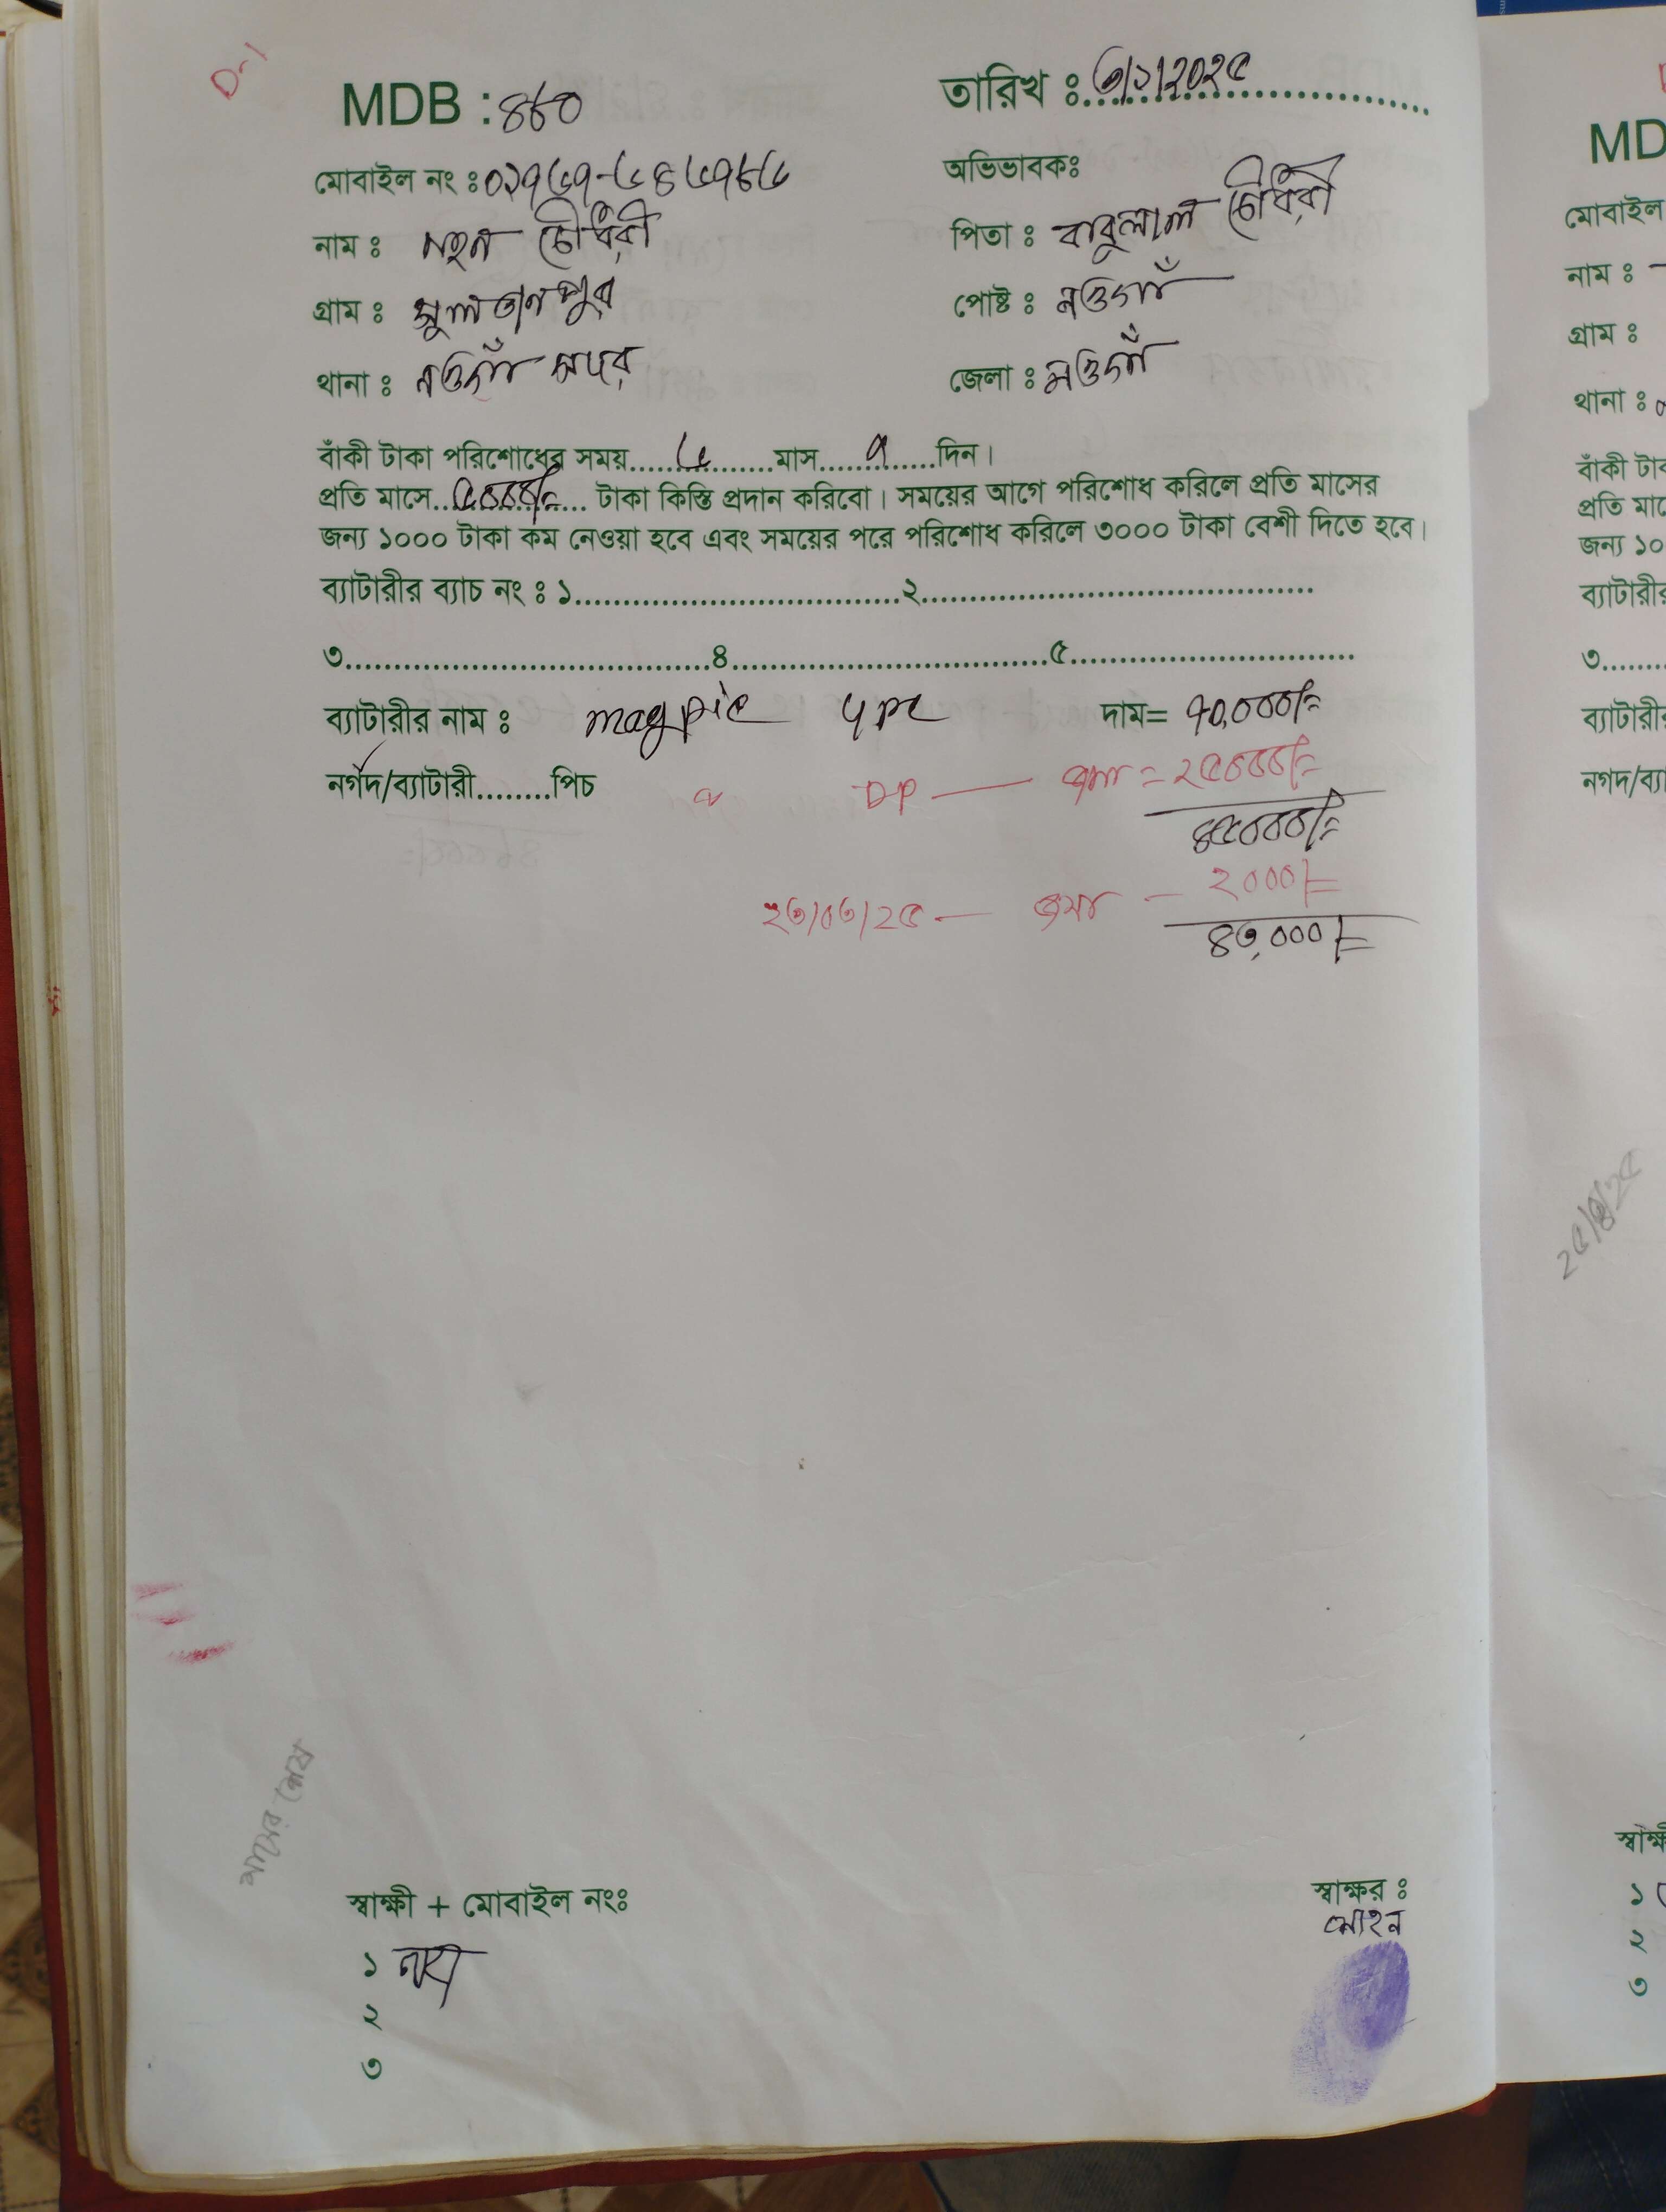 D-1
MDB : ৪৮০ তারিখ ঃ ৩/২/২০২৫
মোবাইল নং ঃ অভিভাবকঃ
নাম ঃ মহন চৌধুরী পিতা ঃ বাবুলাল চৌধুরী
গ্রাম ঃ সুলতানপুর পোষ্ট ঃ নওগাঁ
থানা ঃ নওগাঁ সদর জেলা ঃ নওগাঁ
বাঁকী টাকা পরিশোধের সময়......৬......মাস.....৭.....দিন।
প্রতি মাসে..৫০০০/=... টাকা কিস্তি প্রদান করিবো। সময়ের আগে পরিশোধ করিলে প্রতি মাসের
জন্য ১০০০ টাকা কম নেওয়া হবে এবং সময়ের পরে পরিশোধ করিলে ৩০০০ টাকা বেশী দিতে হবে।
ব্যাটারীর ব্যাচ নং ঃ ১..................................২..........................................
৩......................................৪.................................৫..............................
ব্যাটারীর নাম ঃ magpie 4pc দাম= ৭০,০০০/=
নগদ/ব্যাটারী........পিচ DP — জমা = ২৫০০০/=
৪৫০০০/=
২৩/০৩/২৫ — জমা — ২০০০/=
৪৩,০০০/=
মাসের শেষ
স্বাক্ষী + মোবাইল নংঃ স্বাক্ষর ঃ
মোহন
১
২
৩
MD
মোবাইল
নাম ঃ
গ্রাম ঃ
থানা ঃ
বাঁকী টাক
প্রতি মাসে
জন্য ১০
ব্যাটারীর
৩
ব্যাটারীর
নগদ/ব্যা
স্বাক্ষ
১
২
৩